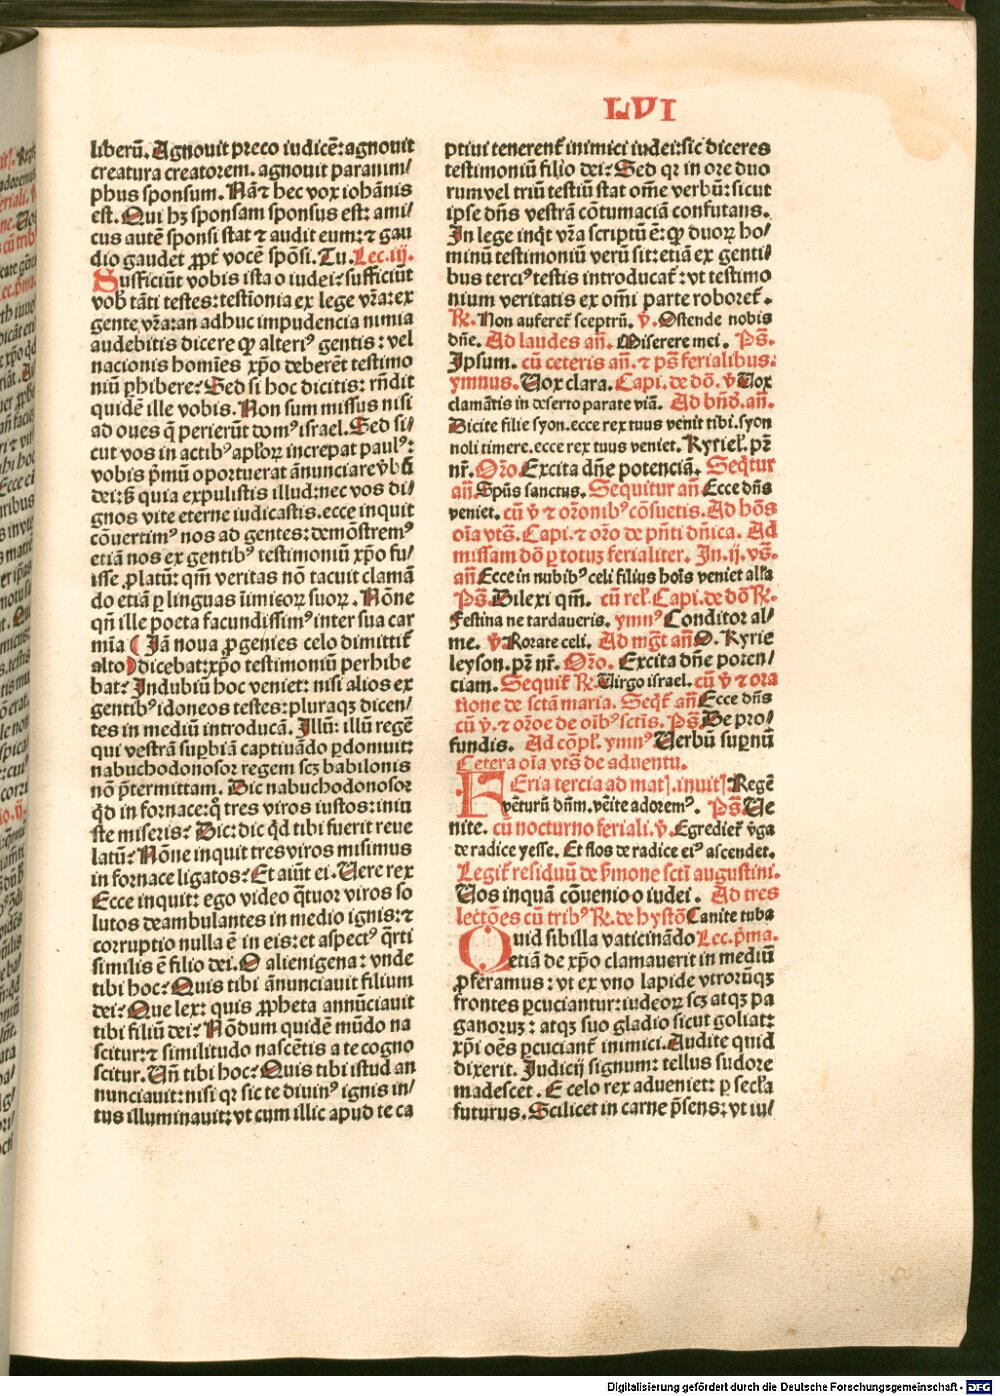 LVI
liberū. Agnouit preco iudicē: agnouit
creatura creatorem. agnouit paranim/
phus sponsum. Nāꝫ hec vox iohānis
est. Qui hꝫ sponsam sponsus est: ami/
cus autē sponsi stat ⁊ audit eum: ⁊ gau
dio gaudet ꝓpt̄ vocē spōsi. Tu. Lec. iij.
Sufficiūt vobis ista o iudei: sufficiūt
vob̄ tāti testes: testīonia ex lege vr̄a: ex
gente vr̄a: an adhuc impudencia nimia
audebitis dicere ꝙ alteriꝰ gentis: vel
nacionis homīes xp̄o deberēt testimo
niū ꝑhibere: Sed si hoc dicitis: rn̄dit
quidē ille vobis. Non sum missus nisi
ad oues q̄ perierūt domꝰ israel. Sed si/
cut vos in actibꝰ apl̓oꝝ increpat paulꝰ:
vobis p̄mū oportuerat ānunciare v̓bū
dei: sꝫ quia expulistis illud: nec vos di/
gnos vite eterne iudicastis. ecce inquit
cōuertimꝰ nos ad gentes: demōstremꝰ
etiā nos ex gentibꝰ testimoniū xp̄o fu/
isse ꝓlatū: qm̄ veritas nō tacuit clamā
do etiā ꝑ linguas īimicoꝝ suoꝝ. Nōne
qn̄ ille poeta facundissimꝰ inter sua car
mīa ( Jā noua ꝓgenies celo dimittit̄
alto) dicebat: xp̄o testimoniū perhibe
bat: Jndubiū hoc veniet: nisi alios ex
gentibꝰ idoneos testes: pluraqꝫ dicen/
tes in mediū introducā. Jllū: illū regē
qui vestrā suꝑbiā captiuādo ꝑdomuit:
nabuchodonosor regem scꝫ babilonis
non p̄termittam. Dic nabuchodonosor
qd̄ in fornace: qn̄ tres viros iustos: iniu
ste miseris: Dic: dic qd̄ tibi fuerit reue
latū: Nōne inquit tres viros misimus
in fornace ligatos: Et aiūt ei. Uere rex
Ecce inquit: ego video q̄tuor viros so
lutos deambulantes in medio ignis: ⁊
corruptio nulla ē in eis: et aspectꝰ q̄rti
similis ē filio dei. O alienigena: vnde
tibi hoc: Quis tibi ānunciauit filium
dei: Que lex: quis ꝓpheta annūciauit
tibi filiū dei: Nōdum quidē mūdo na
scitur: ⁊ similitudo nascētis a te cogno
scitur. Un̄ tibi hoc: Quis tibi istud an
nunciauit: nisi qr sic te diuinꝰ ignis in/
tus illuminauit: vt cum illic apud te ca
ptiui tenerent̄ inimici iudei: sic diceres
testimoniū filio dei: Sed qr in ore duo
rum vel triū testiū stat om̄e verbū: sicut
ipse dn̄s vestrā cōtumaciā confutans.
Jn lege inq̄t vr̄a scriptū ē: ꝙ duoꝝ ho/
minū testimoniū verū sit: etiā ex genti/
bus terciꝰ testis introducat̄: vt testimo
nium veritatis ex om̄i parte roboret̄.
R̄. Non auferet̄ sceptrū. v̄. Ostende nobis
dn̄e. Ad laudes an̄. Miserere mei. Ps̄.
Jpsum. cū ceteris an̄. ⁊ ps̄ ferialibus.
ymnus. Uox clara. Capi. de dō. v̄ Uox
clamātis in deserto parate viā. Ad bn̄d̓. an̄.
Dicite filie syon. ecce rex tuus venit tibi. syon
noli timere. ecce rex tuus veniet. Kyriel̓. pr̄
nr̄. Or̄o. Excita dn̄e potenciā. Seq̄tur
an̄. Spūs sanctus. Sequitur an̄ Ecce dn̄s
veniet. cū v̄ ⁊ or̄onibꝰ cōsuetis. Ad hōs
oīa vts̄. Capi. ⁊ or̄o de pn̄ti dn̄ica. Ad
missam dō ꝑ totuꝫ ferialiter. Jn. ij. vs̄.
an̄ Ecce in nubibꝰ celi filius hoīs veniet all̓a
Ps̄. Dilexi qm̄. cū rel̓. Capi. de dō R̄.
Festina ne tardaueris. ymnꝰ Conditor al/
me. v̄. Rorate celi. Ad mgt̄ an̄ O. Kyrie
leyson. pr̄ nr̄. Or̄o. Excita dn̄e poten/
ciam. Sequit̄ R̄. Uirgo israel. cū v̄ ⁊ ora
tione de sctā maria. Seqt̄ an̄ Ecce dn̄s
cū v̄. ⁊ or̄oe de oībꝰ sctīs. Ps̄. De pro/
fundis. Ad cōpl̓. ymnꝰ Uerbū suꝑnū
Cetera oīa vts̄ de aduentu.
Feria tercia ad mat̓. inuit̓. Regē
vētūrū dn̄m. vēite adoremꝰ. Ps̄. Ue
nite. cū nocturno feriali. v̄. Egrediet̄ v̓ga
de radice yesse. Et flos de radice eiꝰ ascendet.
Legit̄ residuū de s̄mone sctī augustini.
Uos inquā cōuenio o iudei. Ad tres
lectōes cū tribꝰ R̄. de hystō Canite tuba
Quid sibilla vaticinādo Lec. p̄ma.
etiā de xp̄o clamauerit in mediū
ꝓferamus: vt ex vno lapide vtrorūqꝫ
frontes ꝑcuciantur: iudeoꝝ scꝫ atqꝫ pa
ganoruꝫ: atqꝫ suo gladio sicut goliat:
xp̄i oēs ꝑcuciant̄ inimici. Audite quid
dixerit. Judicij signum: tellus sudore
madescet. E celo rex adueniet: ꝑ secl̓a
futurus. Scilicet in carne p̄sens: vt iu/
Digitalisierung gefördert durch die Deutsche Forschungsgemeinschaft - DFG